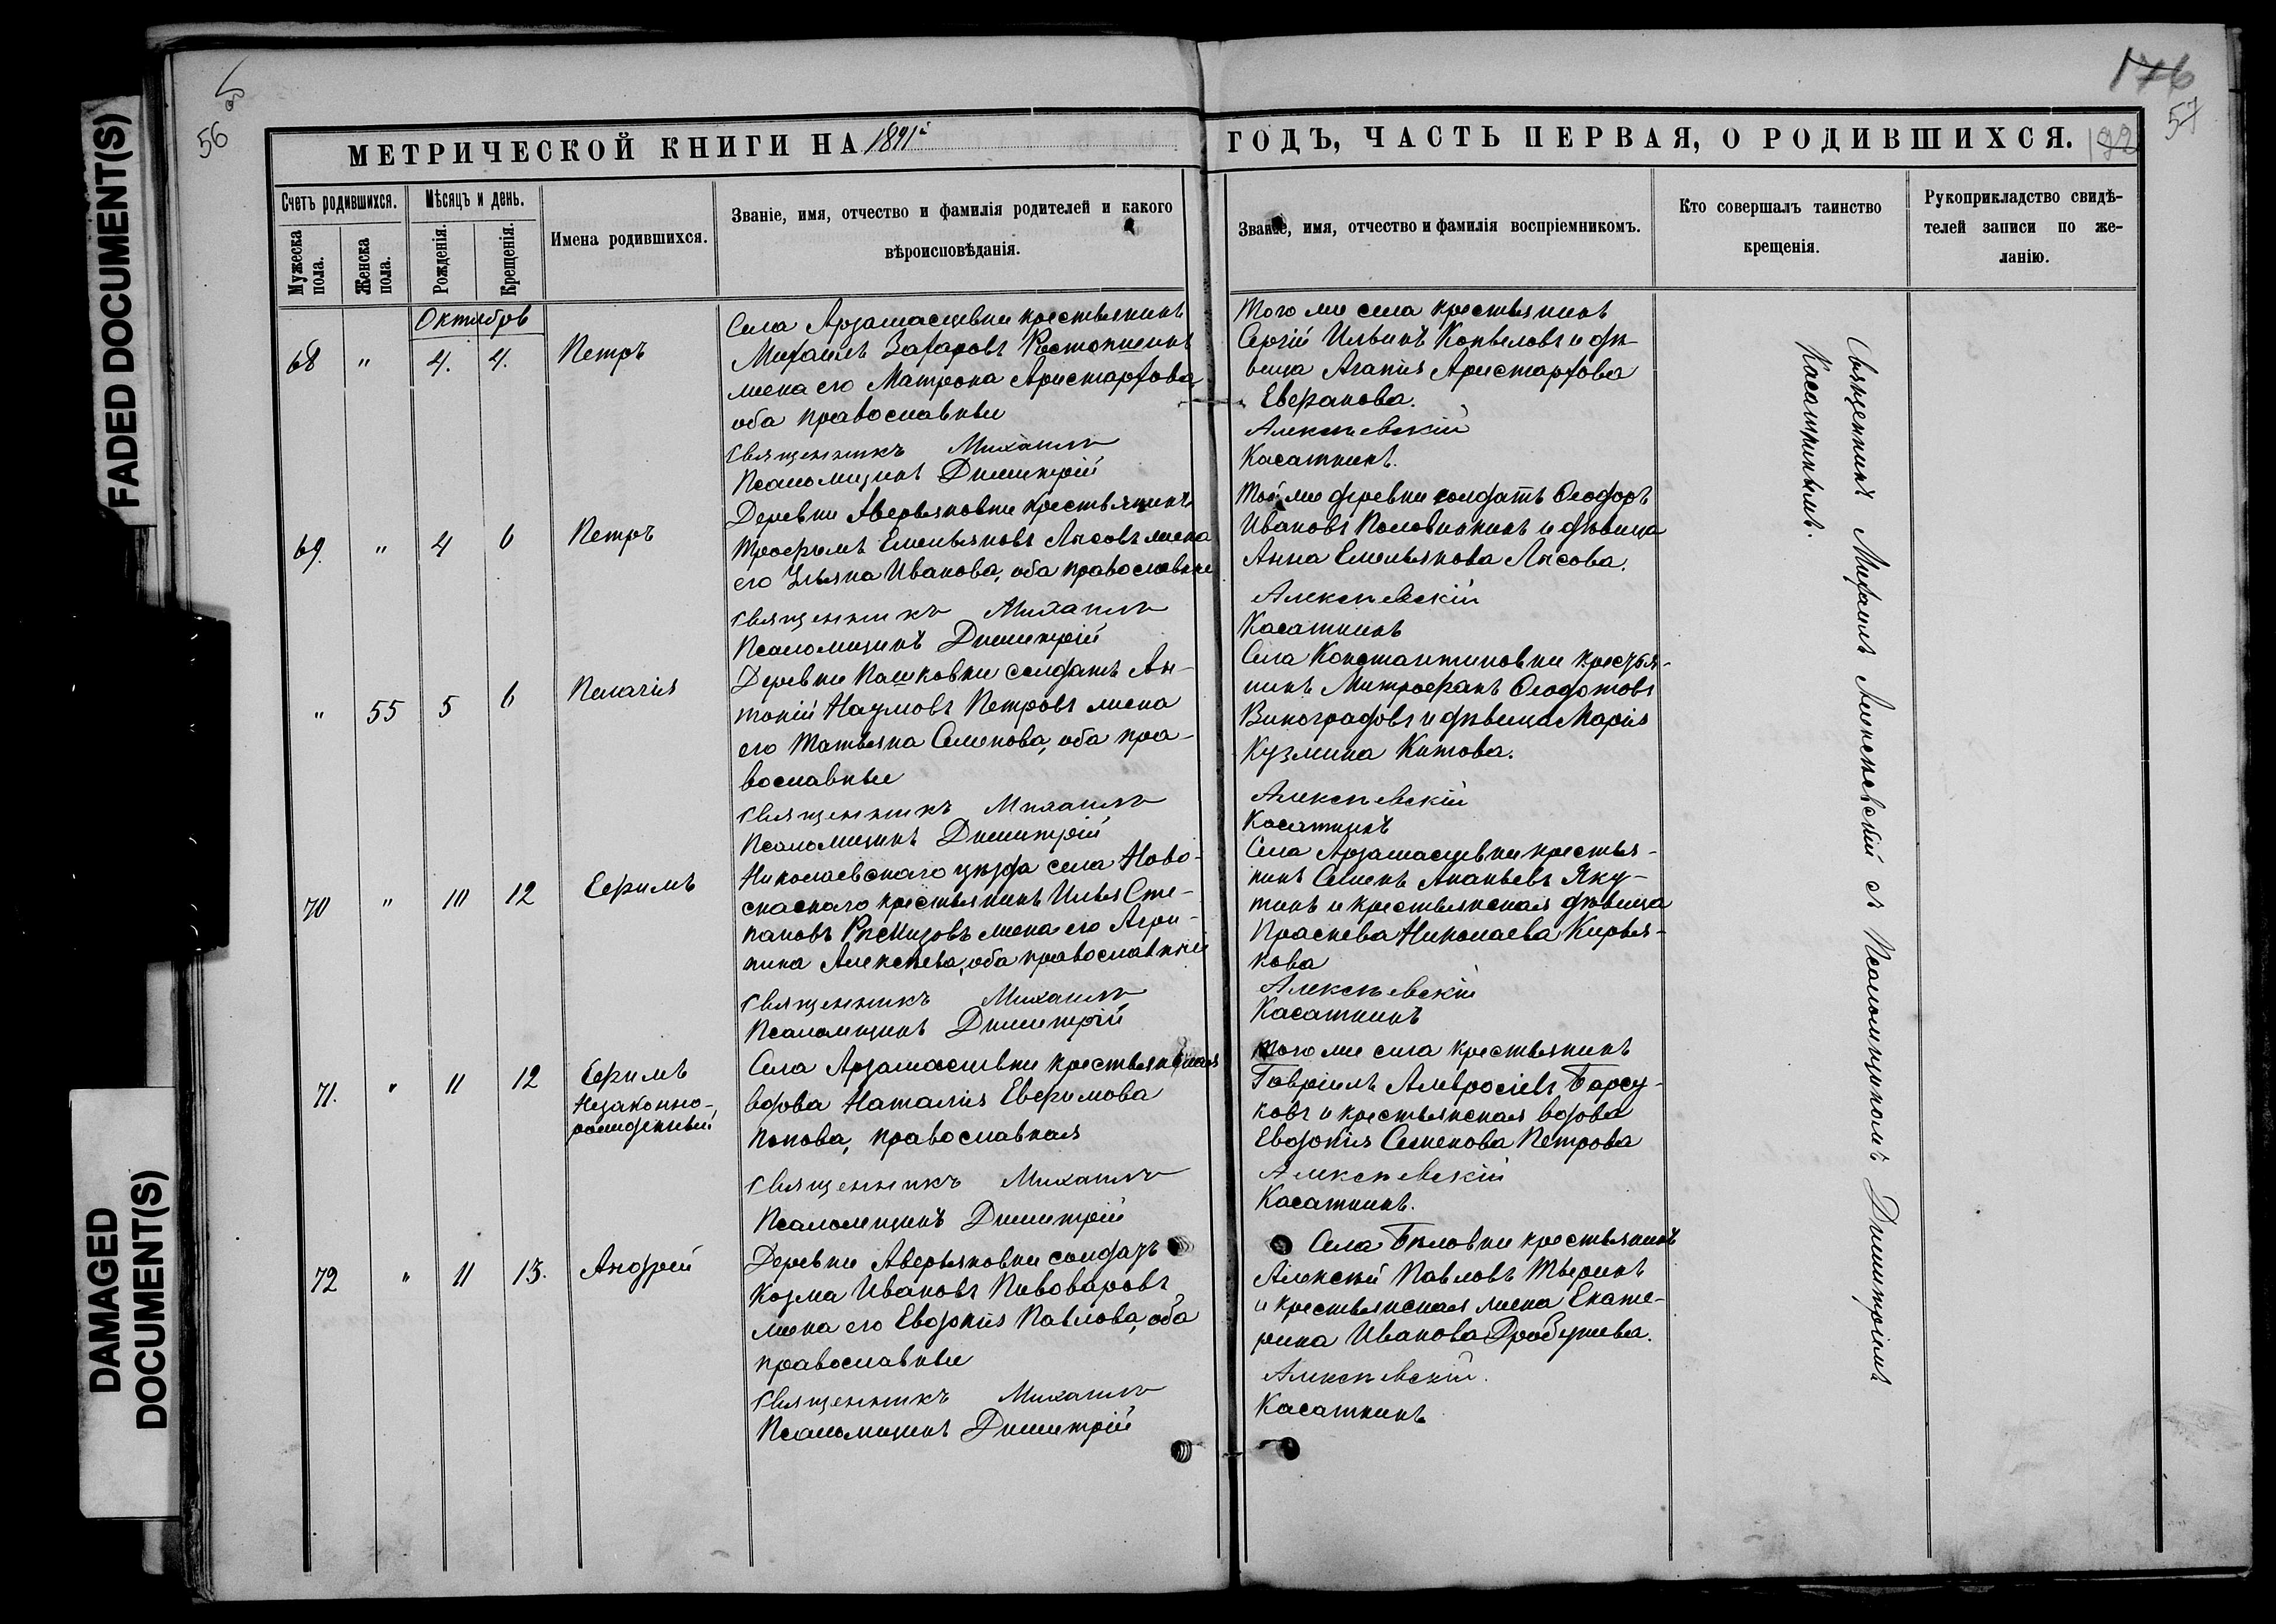 FADED DOCUMENT(S)
DAMAGED
DOCUMENT(S)
56
176
57
192
МЕТРИЧЕСКОЙ КНИГИ НА 1891й
ГОДЪ, ЧАСТЬ ПЕРВАЯ, О РОДИВШИХСЯ.
Счетъ родившихся.
Мужеска пола.
Женска пола.
Мѣсяцъ и день.
Рожденія.
Крещенія.
Имена родившихся.
Званіе, имя, отчество и фамилія родителей и какого
вѣроисповѣданія.
Званіе, имя, отчество и фамилія воспріемникомъ.
Кто совершалъ таинство
крещенія.
Рукоприкладство свидѣ-
телей записи по же-
ланію.
Октябрь
68 " 4. 4. Петръ
Села Арзамасцевки крестьянинъ
Михаилъ Захаровъ Растопшинъ
жена его Матрона Аристархова,
оба православные
Священникъ Михаилъ
Псаломщикъ Димитрій
Того же села крестьянинъ
Сергій Ильинъ Копыловъ и дѣ-
вица Агапія Аристархова
Алексѣевскій
Касаткинъ.
69. " 4 6 Петръ
Деревни Аверьяновки крестьянинъ
Трофимъ Емельяновъ Лысовъ жена
его Ульяна Иванова, оба православные
Священникъ Михаилъ
Псаломщикъ Димитрій
Той же деревни солдатъ Ѳеодоръ
Ивановъ Половинкинъ и дѣвица
Анна Емельянова Лысова.
Алексѣевскій
Касаткинъ
" 55 5 6 Пелагія
Деревни Пашковки солдатъ Ан-
тоній Наумовъ Петровъ жена
его Татьяна Семенова, оба пра-
вославные
Священникъ Михаилъ
Псаломщикъ Димитрій
Села Константиновки крестья-
нинъ Митрофанъ Ѳеодотовъ
Виноградовъ и дѣвица Марія
Кузмина Китова.
Алексѣевскій
Касаткинъ
70 " 10 12 Ефимъ
Николаевскаго уѣзда села Ново-
спаскаго крестьянинъ Илья Сте-
пановъ жена его Агри-
пина Алексѣева, оба православные
Священникъ Михаилъ
Псаломщикъ Димитрій
Села Арзамасцевки крестья-
нинъ Семенъ Ананьевъ Яку-
тинъ и крестьянская дѣвица
Праскева Николаева Кирья-
кова
Алексѣевскій
Касаткинъ
71. " 11 12 Ефимъ
Незаконно-
рожденный
Села Арзамасцевки крестьянская
вдова Наталія Евфимова
Попова, православная
Священникъ Михаилъ
Псаломщикъ Димитрій
Того же села крестьянинъ
Гавріилъ Амвросіевъ Барсу-
ковъ и крестьянская вдова
Евдокія Семенова Петрова
Алексѣевскій
Касаткинъ.
72 " 11 13. Андрей
Деревни Аверьяновки солдатъ
Козма Ивановъ Пивоваровъ
жена его Евдокія Павлова, оба
православные
Священникъ Михаилъ
Псаломщикъ Димитрій
Села Бѣловки крестьянинъ
Алексѣй Павловъ Тверинъ
и крестьянская жена Екате-
рина Иванова
Алексѣевскій.
Касаткинъ
Священникъ Михаилъ Алексѣевскій съ Псаломщикомъ Димитріемъ
Касаткинымъ.